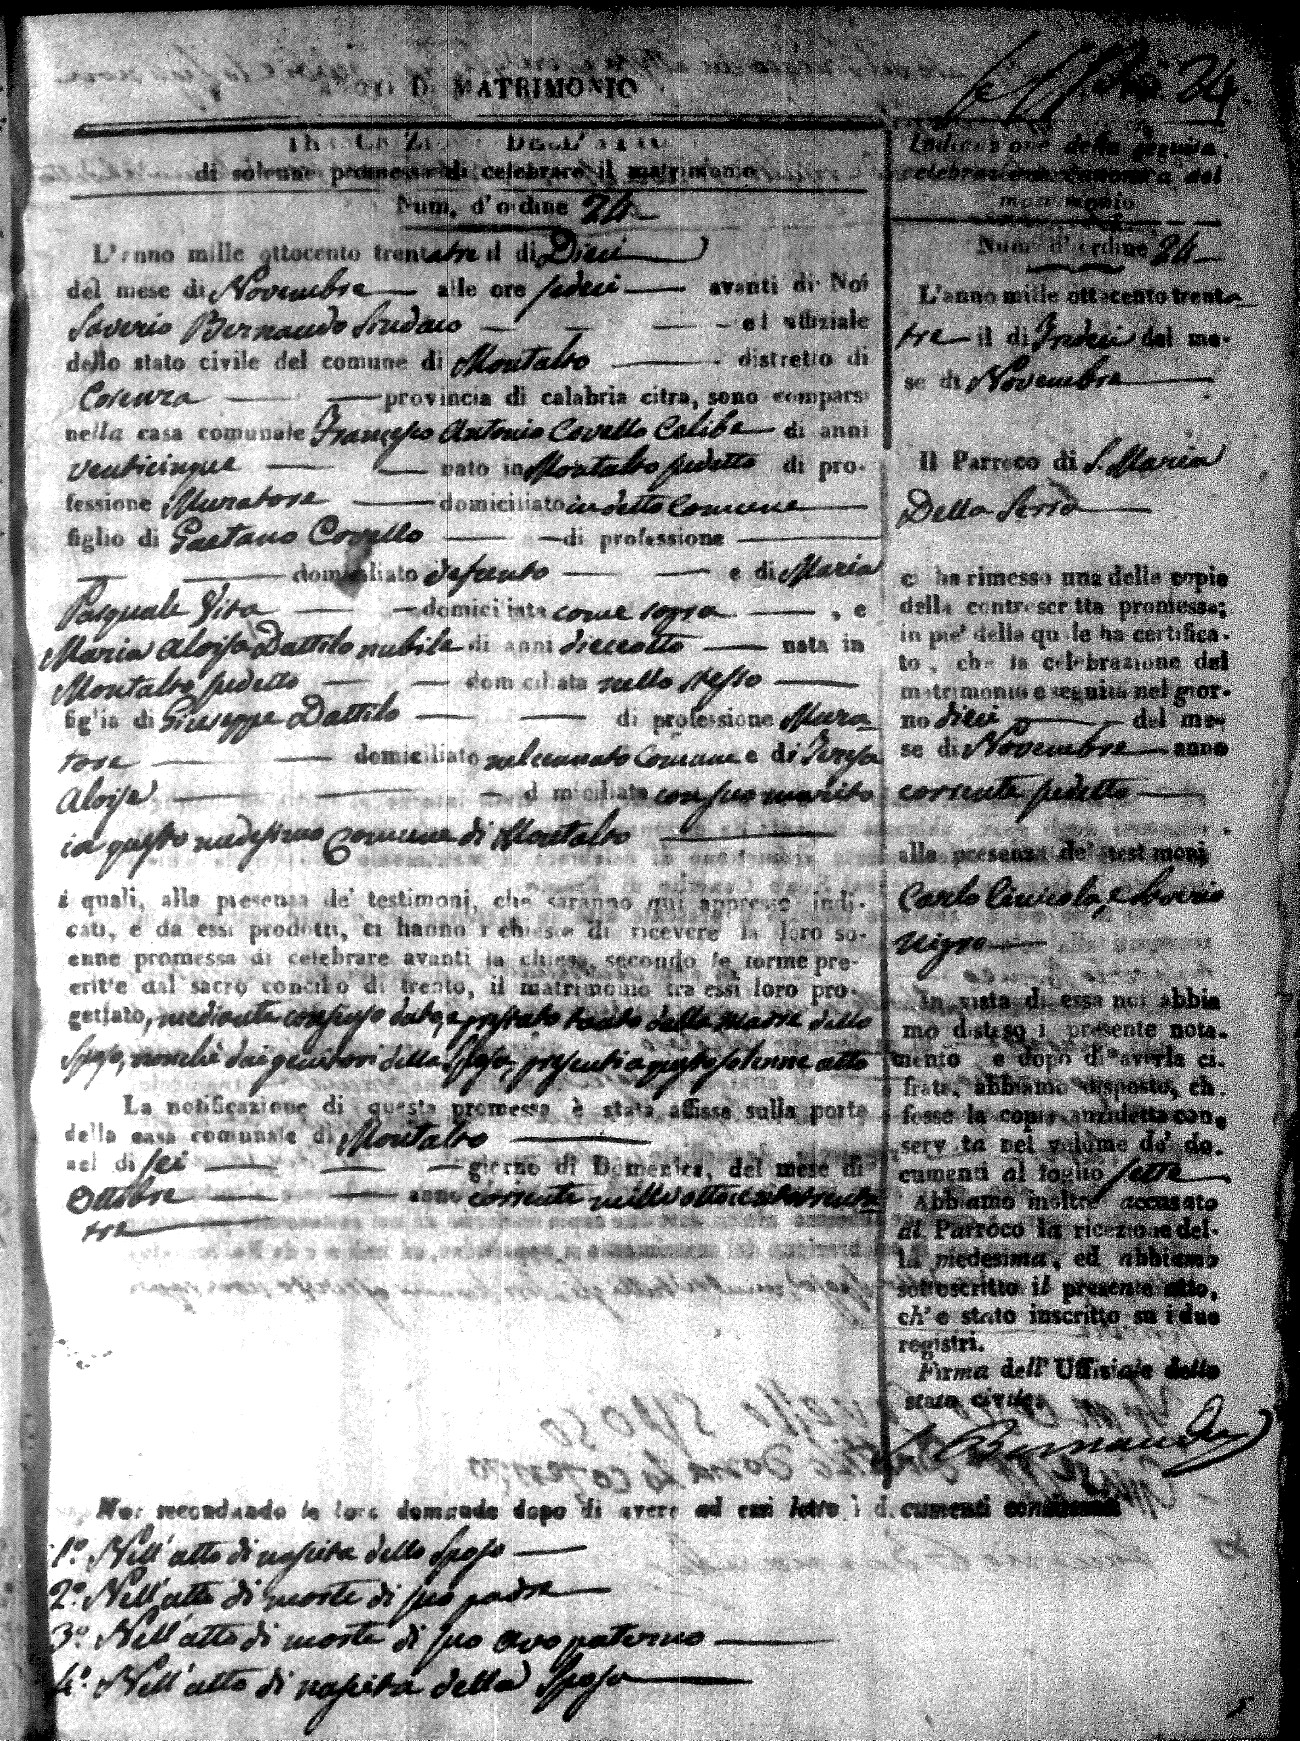 ATTO DI MATRIMONIO
24
DELL' ATTO
di solenne promessa di celebrare il matrimonio
Num. d'ordine 24
L'anno mille ottocento trentatre il di Dieci
del mese di Novembre alle ore sedici avanti di Noi
Saverio Bernaudo Sindaco ed uffiziale
dello stato civile del comune di Montalto distretto di
Cosenza provincia di calabria citra, sono comparsi
nella casa comunale Francesco Antonio Covello Celibe di anni
venticinque nato in Montalto sudetto di pro-
fessione Muratore domiciliato in detto Comune
figlio di Gaetano Covello di professione
domiciliato defunto e di Maria
Pasquale Vita domiciliata come sopra , e
Maria Aloisa Dattilo nubile di anni dieciotto nata in
Montalto sudetto domiciliata nello stesso
figlia di Giuseppe Dattilo di professione Mura
tore domiciliato nel cennato Comune e di Teresa
Aloisa domiciliata con suo marito
in questo medesimo Comune di Montalto
i quali, alla presenza de' testimoni, che saranno qui appresso indi-
cati, e da essi prodotti, ci hanno richiesto di ricevere la loro so-
enne promessa di celebrare avanti la chiesa, secondo le forme pre-
critte dal sacro concilio di trento, il matrimonio tra essi loro pro-
gettato, mediante consenso dato, e prestato dalla madre dello
Sposo, nonchè dai genitori della Sposa, presenti a questo solenne atto
La notificazione di questa promessa è stata affissa sulla porta
della casa comunale di Montalto
nel di sei giorno di Domenica, del mese di
Ottobre anno corrente mille ottocento trenta
tre
Indicazione della seguita
celebrazione canonica del
matrimonio
Num. d'ordine 24
L'anno mille ottocento trenta
tre il di Tredici del me-
se di Novembre
Il Parroco di S. Maria
Della Serra
ci ha rimesso una delle copie
della controscritta promessa;
in pie' della quale ha certifica-
to, che la celebrazione del
matrimonio e seguita nel gior-
no dieci del me-
se di Novembre anno
corrente sudetto
alla presenza de' testimoni
Carlo e Saverio
In vista di essa noi abbia
mo disteso il presente nota-
mento e dopo di averla ci-
frata, abbiamo disposto, ch.
fosse la copia anzidetta con-
servata nel volume de' do-
cumenti al foglio sette
Abbiamo inoltre accusato
al Parroco la ricezione del-
la medesima, ed abbiamo
sottoscritto il presente atto,
ch'e stato inscritto su i due
registri.
Firma dell' Uffiziale dello
stato civile.
Bernaudo
Noi secondando la loro domanda dopo di avere ad essi letto i documenti consistenti
1.° Nell'atto di nascita dello Sposo
2.° Nell'atto di morte di suo padre
3.° Nell'atto di morte di suo avo paterno
4.° Nell'atto di nascita della Sposa